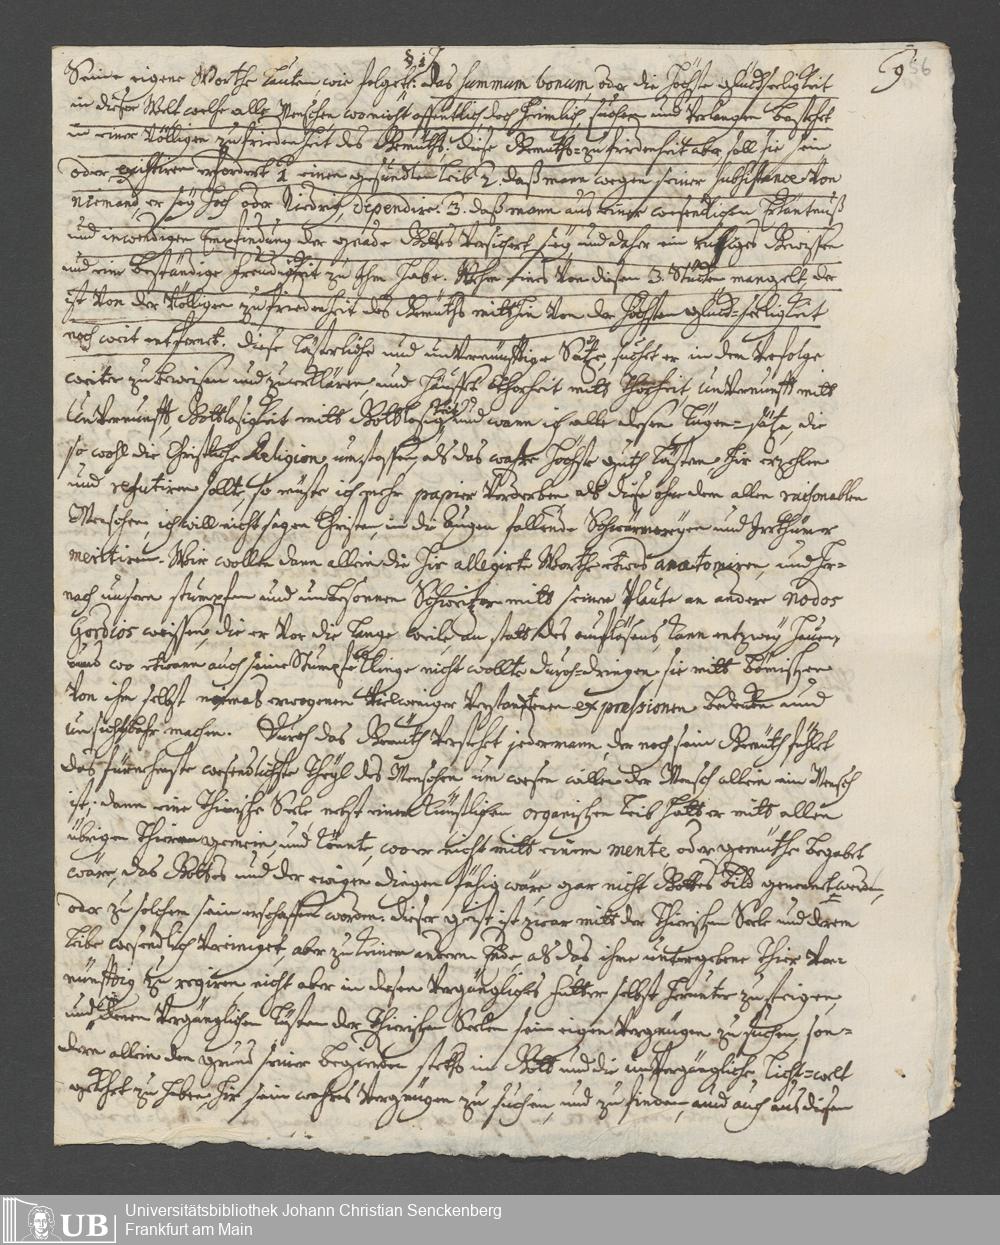 § 1
9 56
Seine eigene Worthe lauten, wie folgeth: das summum bonum oder die höchste glückseeligkeit
in dieser Welt welche alle Menschen, wo nicht öffentlich, doch heimlich, suchen und verlangen bestehet
in einer völligen zufriedenheit des Gemüths: diese Gemüths-zufriedenheit aber, soll sie sein
oder existiren erfordert 1. einen gesundten leib 2. daß mann wegen seiner subsistance von
niemand, er sey hoch oder Niedrig, dependire. 3. daß mann aus einer wesentlichen Erkäntnuß
und inwendigen Empfindung der gnade Gottes versichert sey, und daher ein ruhiges Gewissen
und eine beständige freudigkeit zu Ihm habe. Wehm eines von diesen 3. Stücken mangelt, der
ist von der völligen zufriedenheit des Gemüths mithin von der höchsten glück-seeligkeit
noch weit entfernet. diese lästerliche und unvernünfftige Sätze, suchet er in dem verfolge
weiter zu beweisen und zu erklären, und häuffet thorheit mitt thorheit, unvernunfft mitt
unvernunfft, Gottlosigkeit mitt Gottlosigkeit, und wann ich alle diesen lügen-sätze, die
so wohl die Christliche Religion umstossen, als das wahre höchste guth lästern, hir erzehlen
und refutiren sollte, so müste ich mehr papier verderben als diese ohne dem allen raisonablen
Menschen, ich will nicht sagen Christen, in die augen fallende Schwärmereyen und Irrthümer
meritiren. Wir wollen dann allein die hir allegirte Worthe etwas anatomiren, und her-
nach unsern stumpfen und unbesonnen Schweitzer mitt seiner plaute an andere nodos
Gordios weissen, die er vor die lange weile, an statt des auflösens, kann entzwey hauen,
wo etwann auch seine stumpfe klinge nicht wollte durch-dringen, sie mitt bömischen
von ihm selbst niemals erwogenen vielweniger verstandenen expressionen bedecken und
unsichtbahr machen. Durch das Gemüth verstehet jedermann, der noch sein Gemüth fühlet
das fürnehmste wesendlichste theyl des Menschen um wesen willen der Mensch allein ein Mensch
ist: dann eine thierische Seele nebst einem künstlichen organischen leib hatt er mitt allen
übrigen thieren gemein, und könnte, wo er nicht mitt einem mente oder gemüthe begabet
wäre, das Gottes und der ewigen dingen fähig wäre gar nicht Gottes bild genennet werden,
oder zu solchem sein erschaffen worden. dieser geist ist zwar mitt der thierischen Seele und deren
leibe wesendlich vereiniget, aber zu keinem anderen Ende als das ihm untergebene thier ver-
nünfftig zu regiren, nicht aber in dieses vergängliches hinter selbst herunter zu steigen,
und in denen vergänglichen lüsten der thierischen Seelen sein eigen vergnügen zu suchen, son-
dern allein den grund seiner begierden stetts in Gott und die unvergängliche licht-welt
gekehret zu haben, hir sein wahres vergnügen zu suchen, und zu finden, und auch aus diesem
UB Universitätsbibliothek Johann Christian Senckenberg
Frankfurt am Main